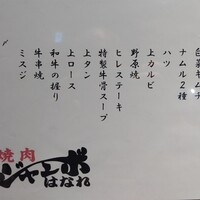 白菜キムチ
ナムル2種
ハツ
上カルビ
野原焼
ヒレステーキ
特製牛骨スープ
上タン
上ロース
和牛の握り
牛串焼
ミスジ
焼肉
ジャンボ
はなれ